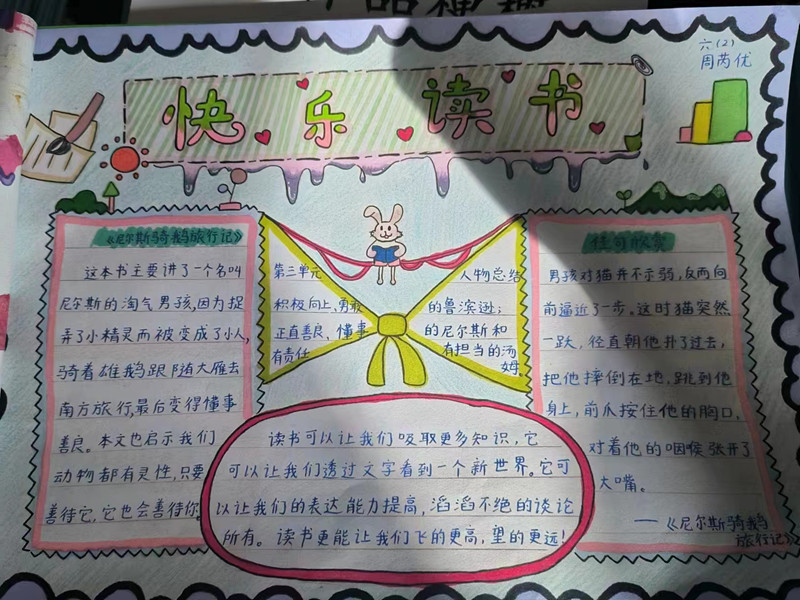 六(2)
周芮优
快乐读书
《尼尔斯骑鹅旅行记》
这本书主要讲了一个名叫
尼尔斯的淘气男孩,因为捉
弄了小精灵而被变成了小人,
骑着雄鹅跟随大雁去
南方旅行,最后变得懂事
善良。本文也启示我们
动物都有灵性,只要
善待它,它也会善待你。
第三单元 人物总结
积极向上、勇敢的鲁滨逊;
正直善良、懂事的尼尔斯和
有责任有担当的汤
姆。
佳句欣赏
男孩对猫并不示弱,反而向
前逼近了一步。这时猫突然
一跃,径直朝他扑了过去,
把他摔倒在地,跳到他
身上,前爪按住他的胸口,
对着他的咽喉张开了
大嘴。
——《尼尔斯骑鹅
旅行记》
读书可以让我们吸取更多知识,它
可以让我们透过文字看到一个新世界。它可
以让我们的表达能力提高,滔滔不绝的谈论
所有。读书更能让我们飞的更高,望的更远!